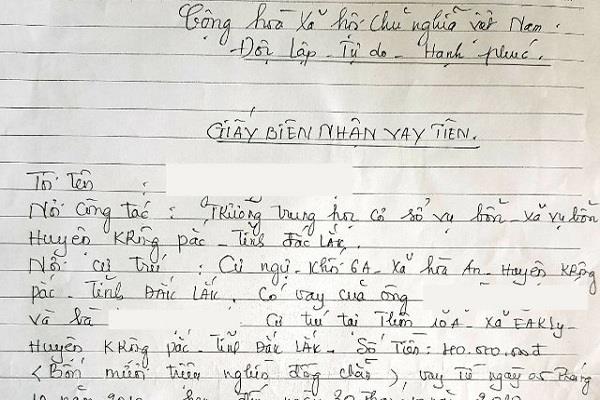 Cộng hoà Xã hội Chủ nghĩa việt Nam.
Độc Lập - Tự do - Hạnh phúc.
GIẤY BIÊN NHẬN VAY TIỀN.
Tôi tên :
Nơi Công tác : Trường trung học cơ sở vụ bổn - xã vụ bổn
Huyện KRông pắc - Tỉnh đắc Lắk.
Nơi cư trú : Cư ngụ - Khối 6A - Xã hòa An - Huyện KRông
pắc - Tỉnh ĐẮK LẮK. Có vay của ông
và bà Cư trú tại Thôn 10A - Xã EAKly -
Huyện KRông pắc - Tỉnh Đắk LẮK - Số Tiền: 40.000.000đ
(Bốn mươi triệu nghìn đồng chẵn), vay Từ ngày 05 Tháng